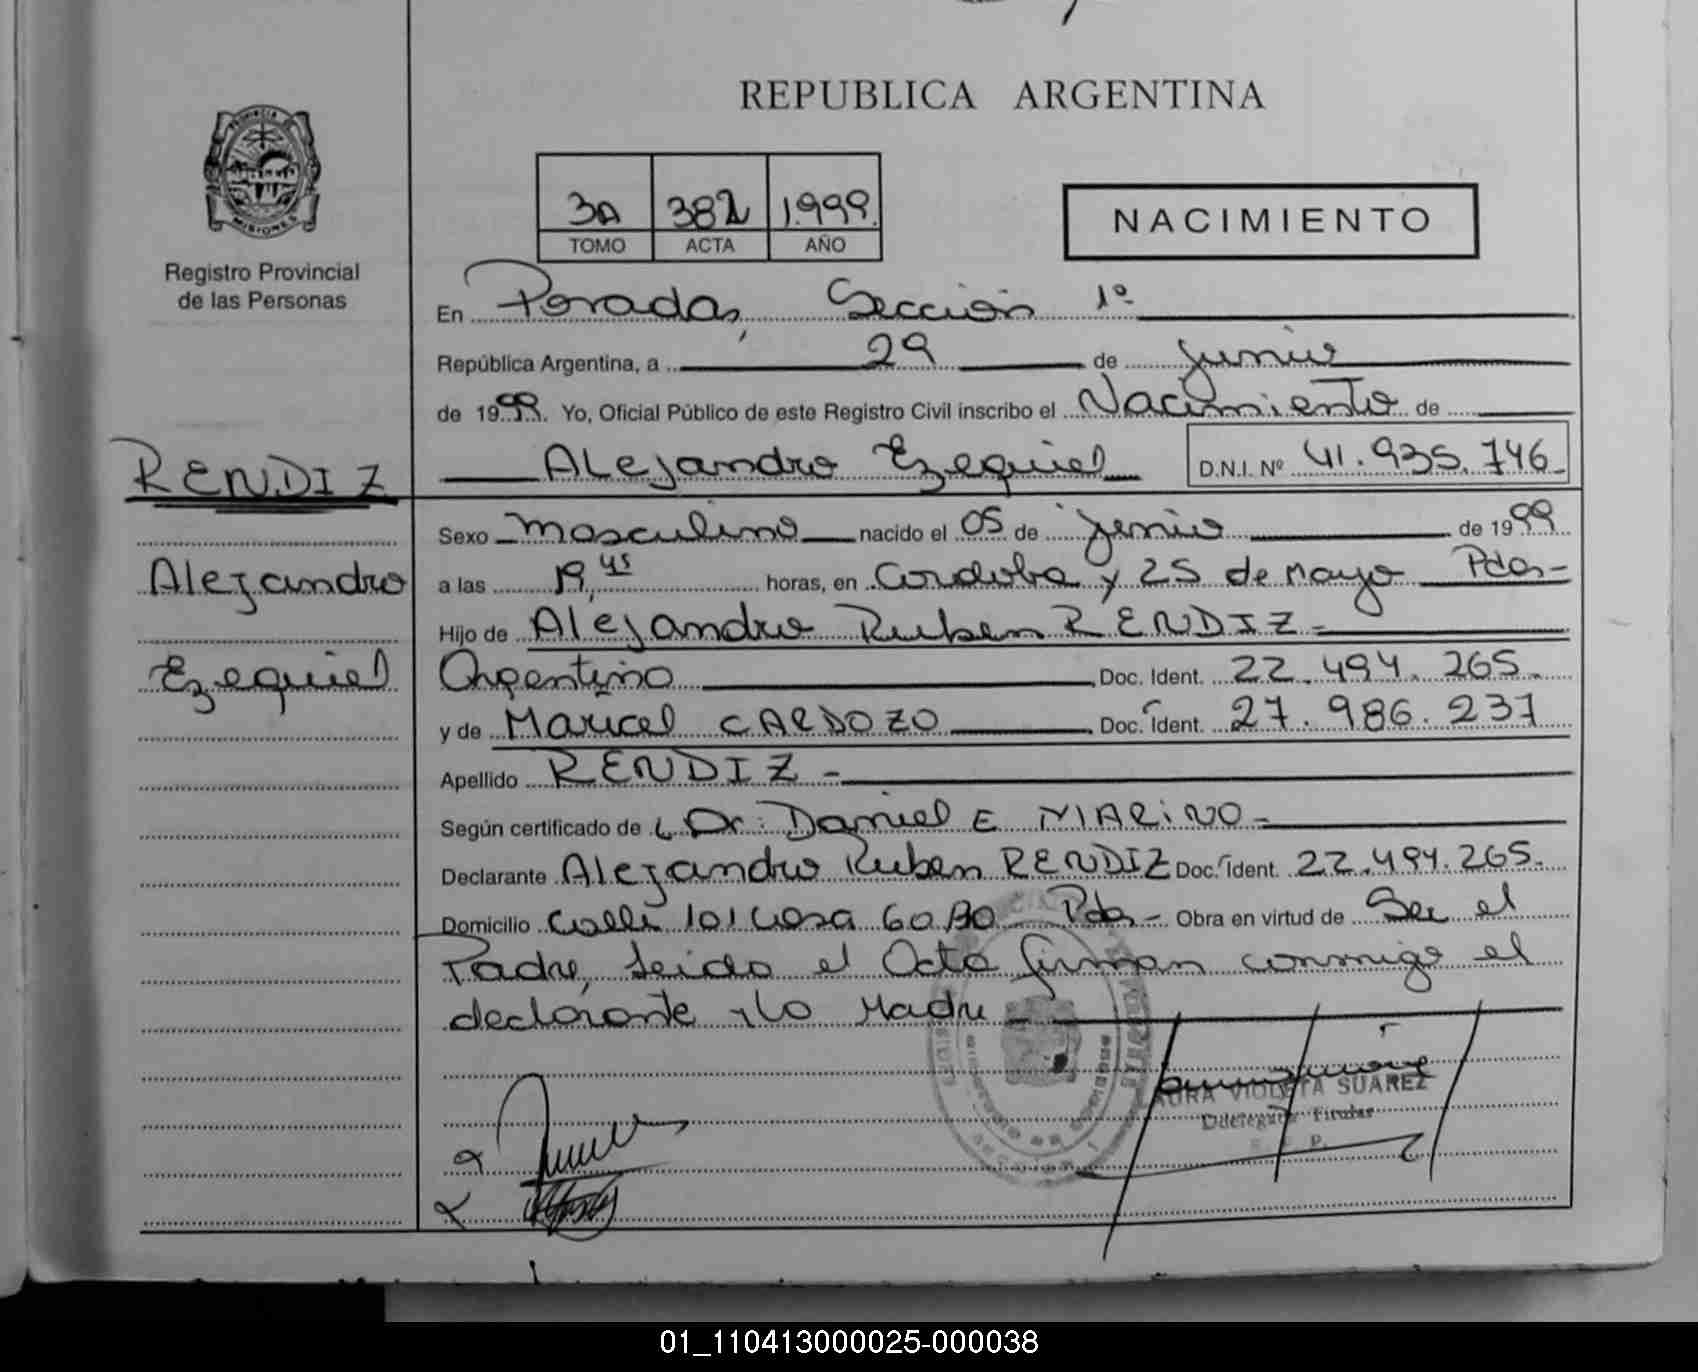 REPUBLICA ARGENTINA
PROVINCIA DE
MISIONES
Registro Provincial
de las Personas
3A 382 1.999.
TOMO ACTA AÑO
NACIMIENTO
En Posadas, Sección 1º
República Argentina, a 29 de junio
de 1999. Yo, Oficial Público de este Registro Civil inscribo el Nacimiento de
RENDIZ
Alejandro Ezequiel D.N.I. Nº 41.935.746
Sexo Masculino nacido el 05 de junio de 1999
Alejandro
a las 19,45 horas, en Cordoba y 25 de Mayo Pdas-
Hijo de Alejandro Ruben RENDIZ-
Ezequiel
Argentino Doc. Ident. 22.494.265.
y de Maricel CARDOZO Doc. Ident. 27.986.237
Apellido RENDIZ-
Según certificado de Dr. Daniel E MARiNO-
Declarante Alejandro Ruben RENDIZ Doc. Ident. 22.494.265.
Domicilio Calle 101 casa 60 Pdas- Obra en virtud de Ser el
Padre, Leida el Acta firman conmigo el
declarante y la Madre
LAURA VIOLETA SUAREZ
Titular
01_110413000025-000038